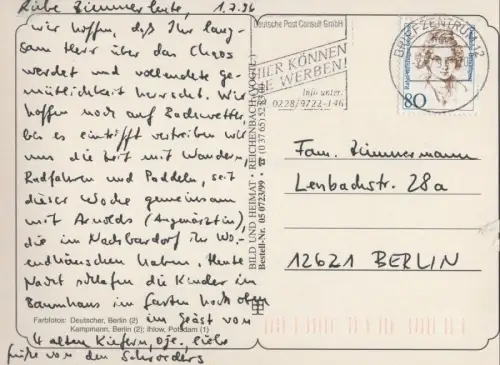 Liebe Zimmerleute, 1.7.96
wir hoffen, daß Ihr lang-
sam Herr über das Chaos
werdet und vollendete ge-
mütlichkeit herrscht. Wir
hoffen noch auf Badewetter
bis es eintrifft vertreiben wir
uns die Zeit mit Wandern
Radfahren und Paddeln, seit
dieser Woche gemeinsam
mit Arnolds (Augenärztin),
die im Nachbardorf ihr Wo-
endhäuschen haben. Heute
Nacht schlafen die Kinder im
Baumhaus im Garten hoch oben
im Geäst von
4 alten Kiefern, oje, liebe
grüße von den Schroeders
Farbfotos: Deutscher, Berlin (2)
Kampmann, Berlin (2); Ihlow, Potsdam (1)
BILD UND HEIMAT • REICHENBACH (VOGTL.)
Bestell-Nr. 05 0723/99
Deutsche Post Consult GmbH
HIER KÖNNEN
SIE WERBEN!
Info unter:
0228/9722-146
BRIEFZENTRUM 12
80
Fam. Zimmermann
Lenbachstr. 28a
12621 BERLIN